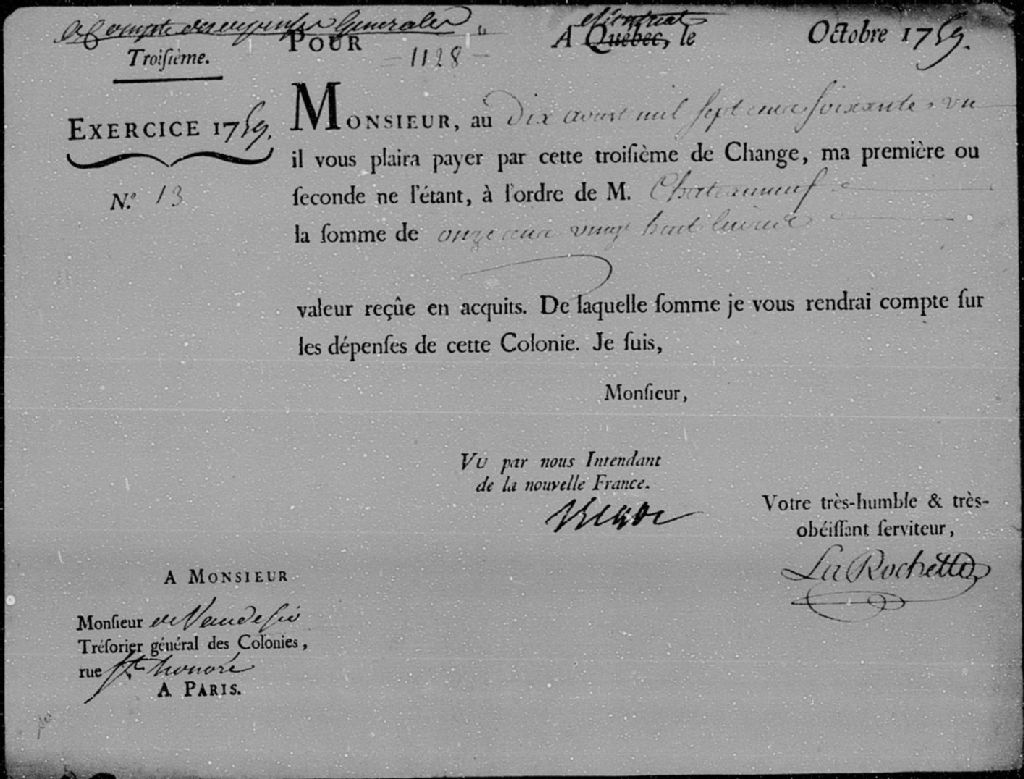 a Compte des depenses Generales "
Troiſième.
POUR
– 1128 –
A Québec, le Montreal Octobre 1759.
EXERCICE 1759.
N.º 13
MONSIEUR, au Dix aoust mil sept cens soixante, un
il vous plaira payer par cette troiſième de Change, ma première ou
ſeconde ne l'étant, à l'ordre de M. Chateauneuf
la ſomme de onze cens vingt huit livres
valeur reçûe en acquits. De laquelle ſomme je vous rendrai compte ſur
les dépenſes de cette Colonie. Je ſuis,
Monſieur,
VU par nous Intendant
de la nouvelle France.
Bigot
Votre très-humble & très-
obéiſſant ſerviteur,
La Rochette
A MONSIEUR
Monſieur de
Tréſorier général des Colonies,
rue St honoré
A PARIS.